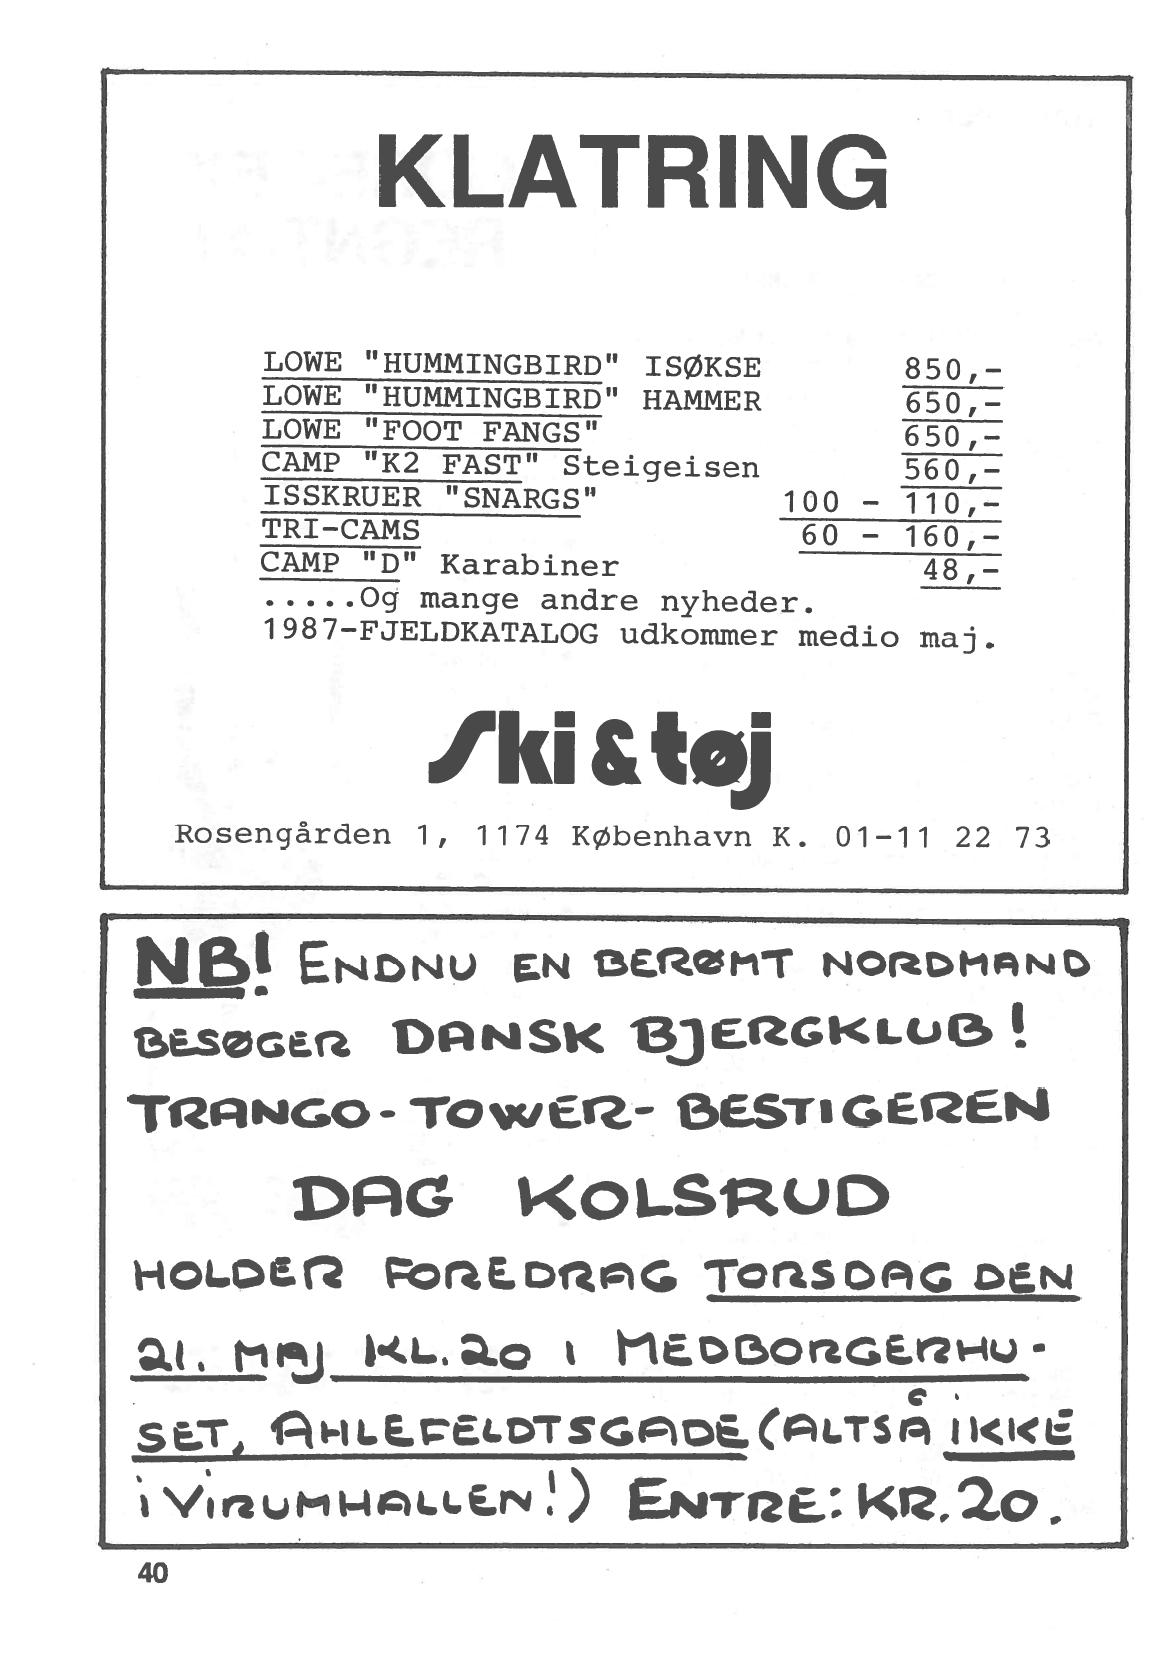 KLATRING
LOWE "HUMMINGBIRD" ISØKSE 850,-
LOWE "HUMMINGBIRD" HAMMER 650,-
LOWE "FOOT FANGS" 650,-
CAMP "K2 FAST" Steigeisen 560,-
ISSKRUER "SNARGS" 100 - 110,-
TRI-CAMS 60 - 160,-
CAMP "D" Karabiner 48,-
.....Og mange andre nyheder.
1987-FJELDKATALOG udkommer medio maj.
Ski & tøj
Rosengården 1, 1174 København K. 01-11 22 73
NB! ENDNU EN BERØMT NORDMAND
BESØGER DANSK BJERGKLUB!
TRANGO-TOWER-BESTIGEREN
DAG KOLSRUD
HOLDER FOREDRAG TORSDAG DEN
21. MAJ KL.20 I MEDBORGERHU-
SET, AHLEFELDTSGADE (ALTSÅ IKKE
i VIRUMHALLEN!) ENTRE: KR.20.
40